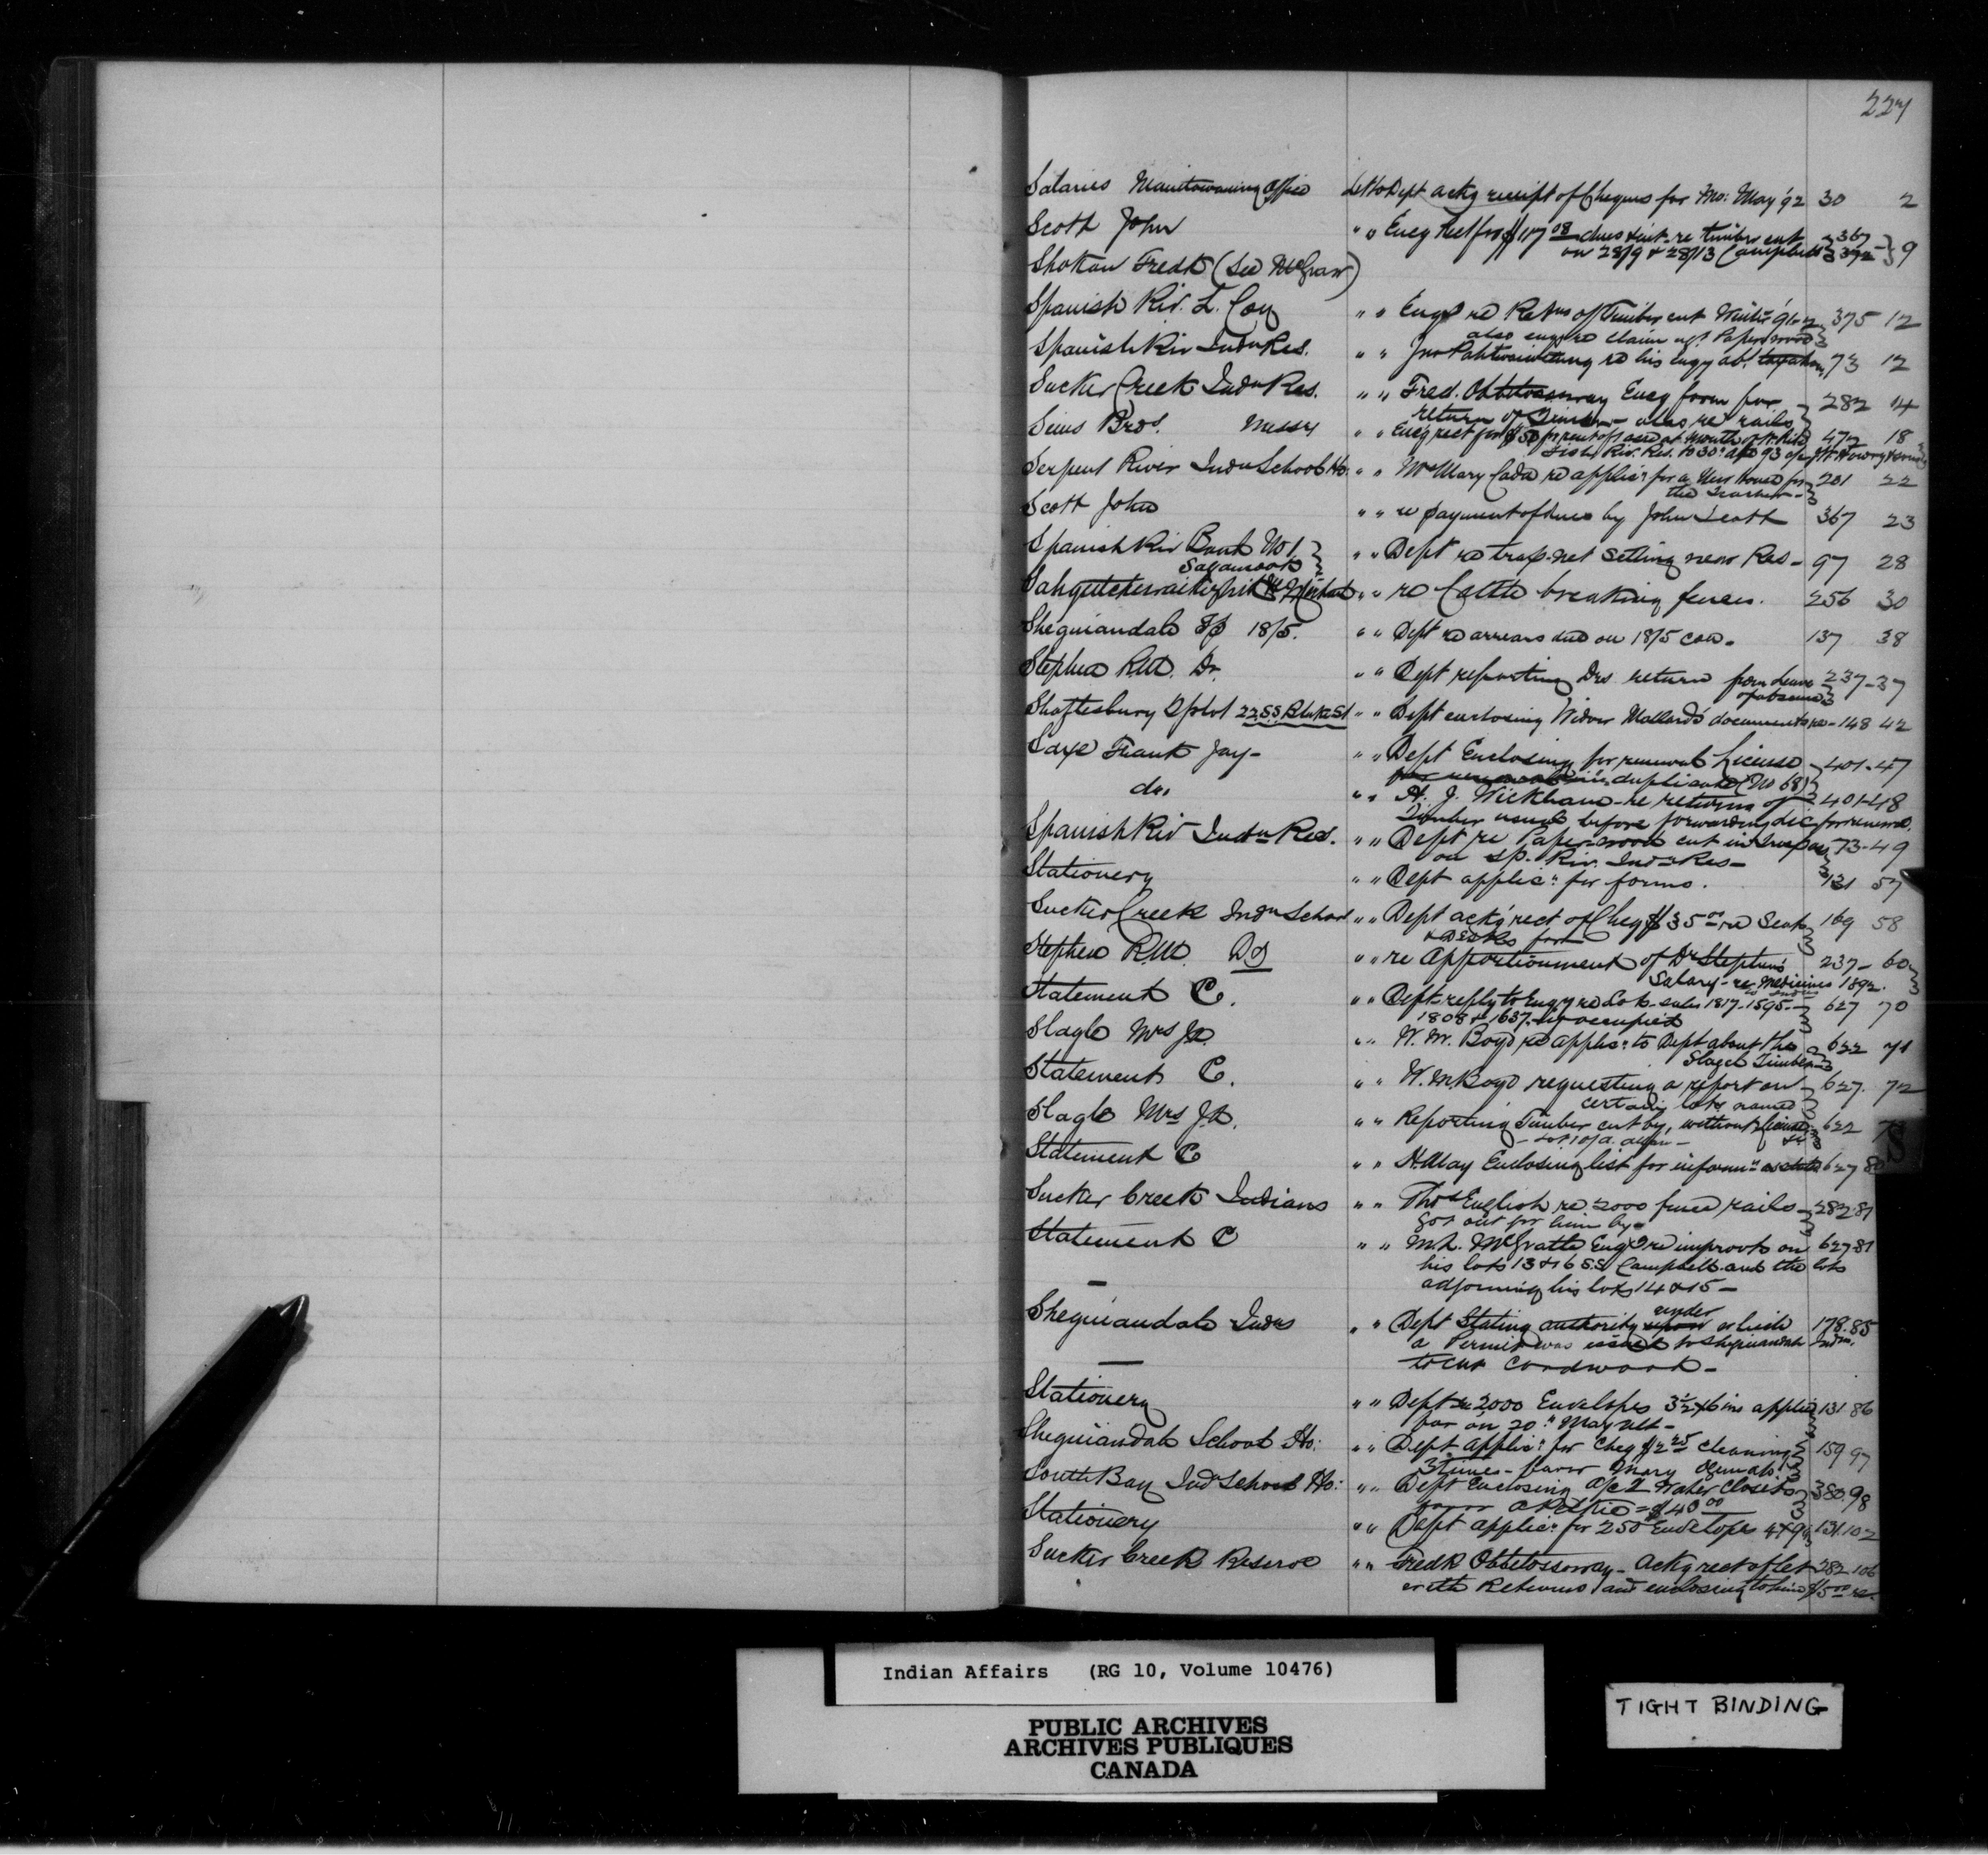 227
Salaries Manitowaning Office Let to Dept ackg receipt of Cheques for Mo: May '92 30 2
Scott John " " Encg Rect for $117 08 dues & int. re timber cut 367 9
on 28/9 & 28/13 Campbell 392
Shokan Fredk (See McGraw)
Spanish Riv. L. Coy " " Engs re Retns of Timber cut Winter 91-2 375 12
also engs re claim agt Paperwood
Spanish Riv Indn Res. " " Jno re his engy abt 73 12
Sucker Creek Indn Res. " " Fred. Obbetossoway Encg form for 282 14
return of Timber - also re rails
Sims Bros. Messrs " " Encg rect for $50 for rent of at mouth of 472 18
Fish Riv. Res. to 30 93
Serpent River Indn School Ho. " " Mrs Mary Cada re applicn for a New House for 201 22
the Teacher
Scott John " " re payment of dues by John Scott 367 23
Spanish Riv Band No 1. " " Dept re trap-net setting near Res - 97 28
Sagamook
" " re Cattle breaking fences. 256 30
Sheguiandah Tp 18/5. " " Dept re arrears due on 18/5 con. 137 38
Stephen R.M. Dr. " " Dept reporting Drs return from Leave 237-37
of absence
Shaftesbury 22 S.S. Blake St " " Dept enclosing Widow Mallard's documents re - 148 42
Saxe Frank Jay - " " Dept Enclosing for renewal License 401-47
in duplicate (No 68)
do. " " H. J. Wickham - re returns of 401-48
Timber usual before forwarding Lic for renewal.
Spanish Riv Indn Res. " " Dept re Paper-wood cut in trespass 73-49
on Sp. Riv. Indn Res -
Stationery " " Dept applicn for forms. 131 57
Sucker Creek Indn School " " Dept ackg rect of Cheq $35 00 re Seats 169 58
& Desks for
Stephen R.M. Dr " " re Apportionment of Dr Stephen's 237- 60
Salary - re Medicines 1892.
Statement C. " " Dept reply to Engy re Lots sales 1817-1595 - 627 70
1808 & 1637 - occupied
Slagle Mrs Js. " " W. M. Boyd re applicn to Dept about the 622 71
Slagel Timber
Statement C. " " W. M. Boyd requesting a report on 627. 72
certain lots named
Slagle Mrs Js. " " Reporting Timber cut by, without license 622
- Lot 10/a. Allan -
Statement C " " H. May Enclosing list for informn 627 80
Sucker Creek Indians " " Thos English re 2000 fence rails 282 81
got out for him by -
Statement C " " M. L. McGrath Engs re improvts on 627 81
his lots 13 & 16 S.S. Campbell and the lots
adjoining his lots 14 & 15 -
Sheguiandah Indns " " Dept Stating authority under which 178-85
a Permit was issued to Sheguiandah Indns.
to cut Cordwood -
Stationery " " Dept re 2000 Envelopes 3½ x 6 ins applied 131 86
for on 20th May ult -
Sheguiandah School Ho: " " Dept. Applicn for Cheq $2 25 cleaning 159 97
3 times - favor Mary
South Bay Indn School Ho: " " Dept Enclosing a/c 2 Water Closets 380.98
favor = $40 00
Stationery " " Dept applicn for 250 Envelopes 4 x 9 131.102
Sucker Creek Reserve " " Fredk Obbetossoway - Ackg rect of let 282 106
with Returns and enclosing to him $5 00 re.
S
Indian Affairs (RG 10, Volume 10476)
PUBLIC ARCHIVES
ARCHIVES PUBLIQUES
CANADA
TIGHT BINDING